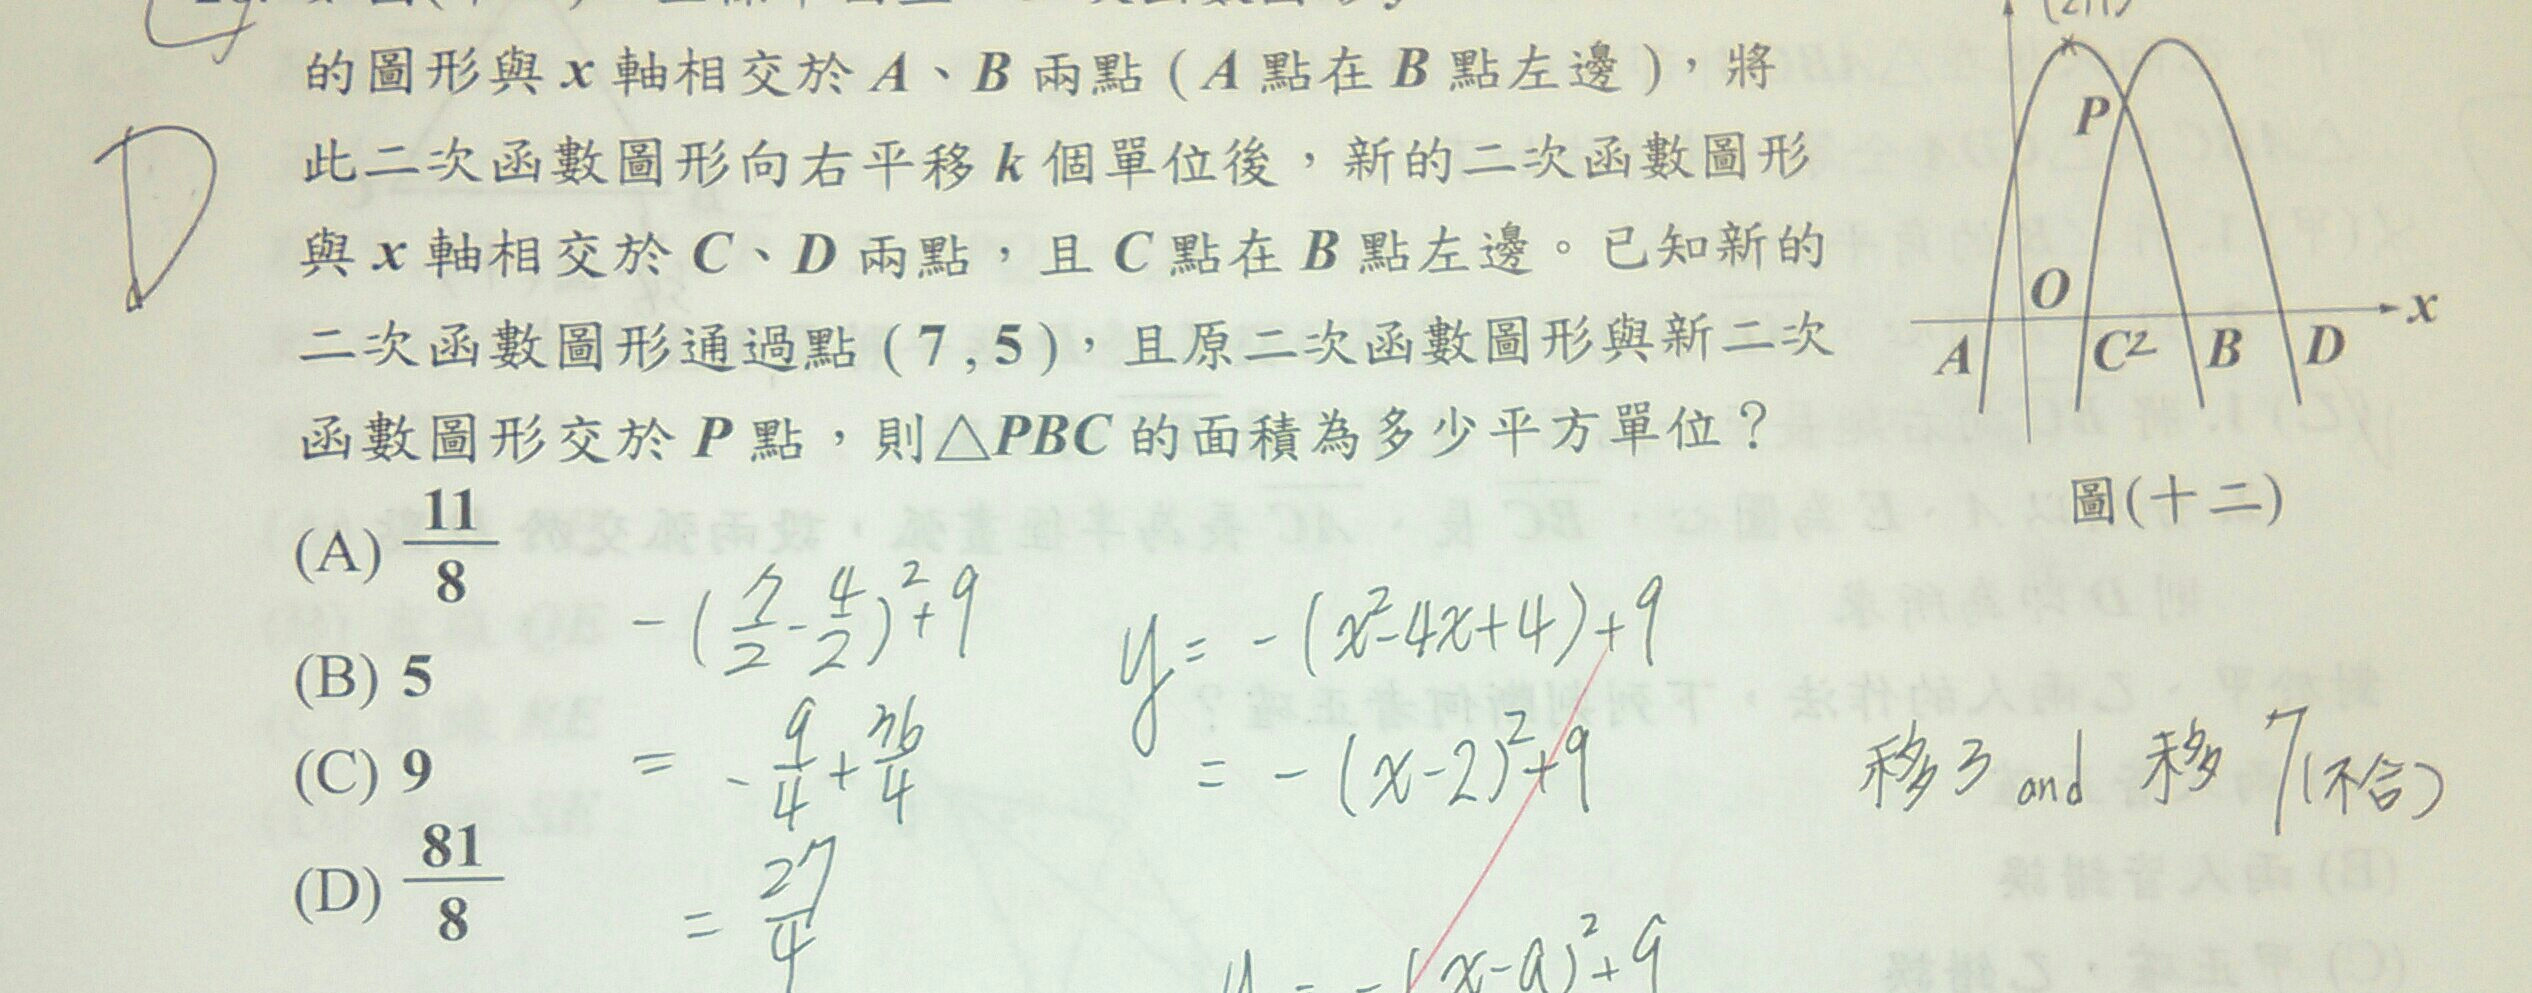 的圖形與 x 軸相交於 A、B 兩點（A 點在 B 點左邊），將
此二次函數圖形向右平移 k 個單位後，新的二次函數圖形
與 x 軸相交於 C、D 兩點，且 C 點在 B 點左邊。已知新的
二次函數圖形通過點（7,5），且原二次函數圖形與新二次
函數圖形交於 P 點，則△PBC 的面積為多少平方單位？
(A) 11/8
(B) 5
(C) 9
(D) 81/8
D
P
O
x
A
C
2
B
D
圖(十二)
-(7/2-4/2)²+9
= -9/4+36/4
= 27/4
y = -(x²-4x+4)+9
= -(x-2)²+9
y = -(x-a)²+9
移3 and 移7(不合)